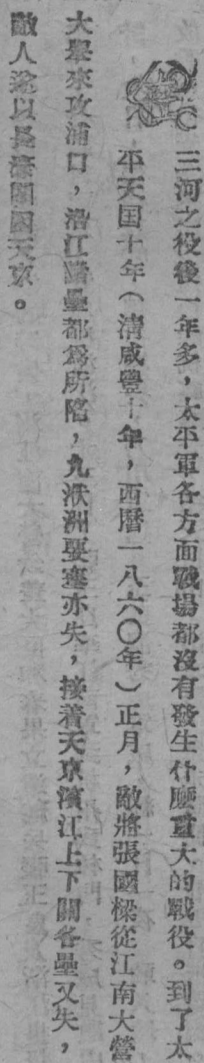 三河之役後一年多，太平軍各方面戰場都沒有發生什麼重大的戰役。到了太
平天囯十年（清咸豐十年，西曆一八六〇年）正月，敵將張國樑從江南大營
大舉來攻浦口，沿江諸壘都爲所陷，九洑洲要塞亦失，接着天京濱江上下關各壘又失，
敵人遂以長濠圍困天京。